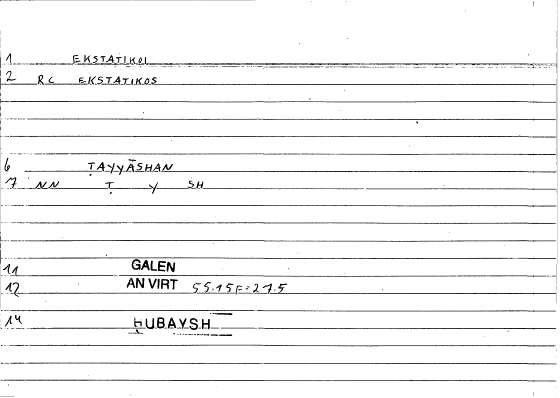 1 EKSTATIKOI
2 RC EKSTATIKOS
6 ṬAYYĀSHAN
7 NN Ṭ Y SH
11 GALEN
12 AN VIRT 55.15F=27.5
14 ḤUBAYSH